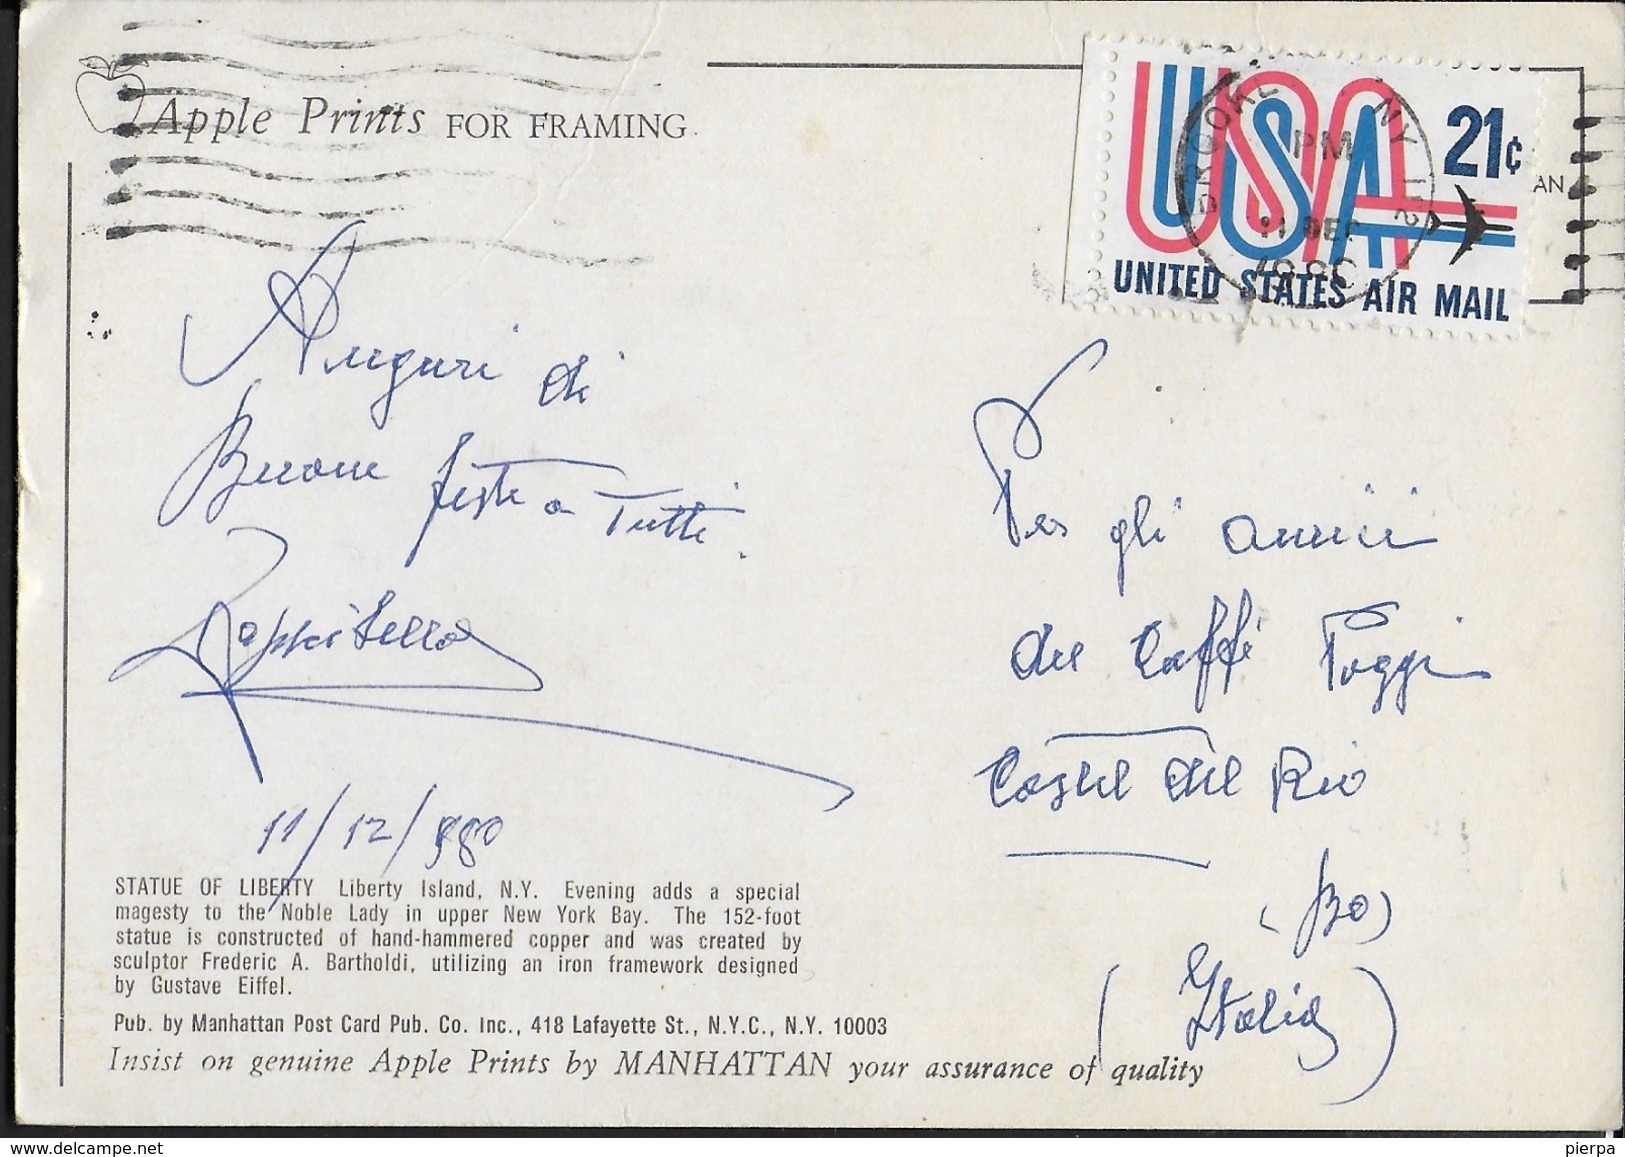 Apple Prints FOR FRAMING
USA
21¢
UNITED STATES AIR MAIL
NY 112
PM
11 DEC
AN
Auguri di
Buone feste a Tutti.
11/12/980
Per gli amici
del Caffè Poggi
Castel del Rio
(BO)
(Italia)
STATUE OF LIBERTY Liberty Island, N.Y. Evening adds a special
magesty to the Noble Lady in upper New York Bay. The 152-foot
statue is constructed of hand-hammered copper and was created by
sculptor Frederic A. Bartholdi, utilizing an iron framework designed
by Gustave Eiffel.
Pub. by Manhattan Post Card Pub. Co. Inc., 418 Lafayette St., N.Y.C., N.Y. 10003
Insist on genuine Apple Prints by MANHATTAN your assurance of quality
pierpa